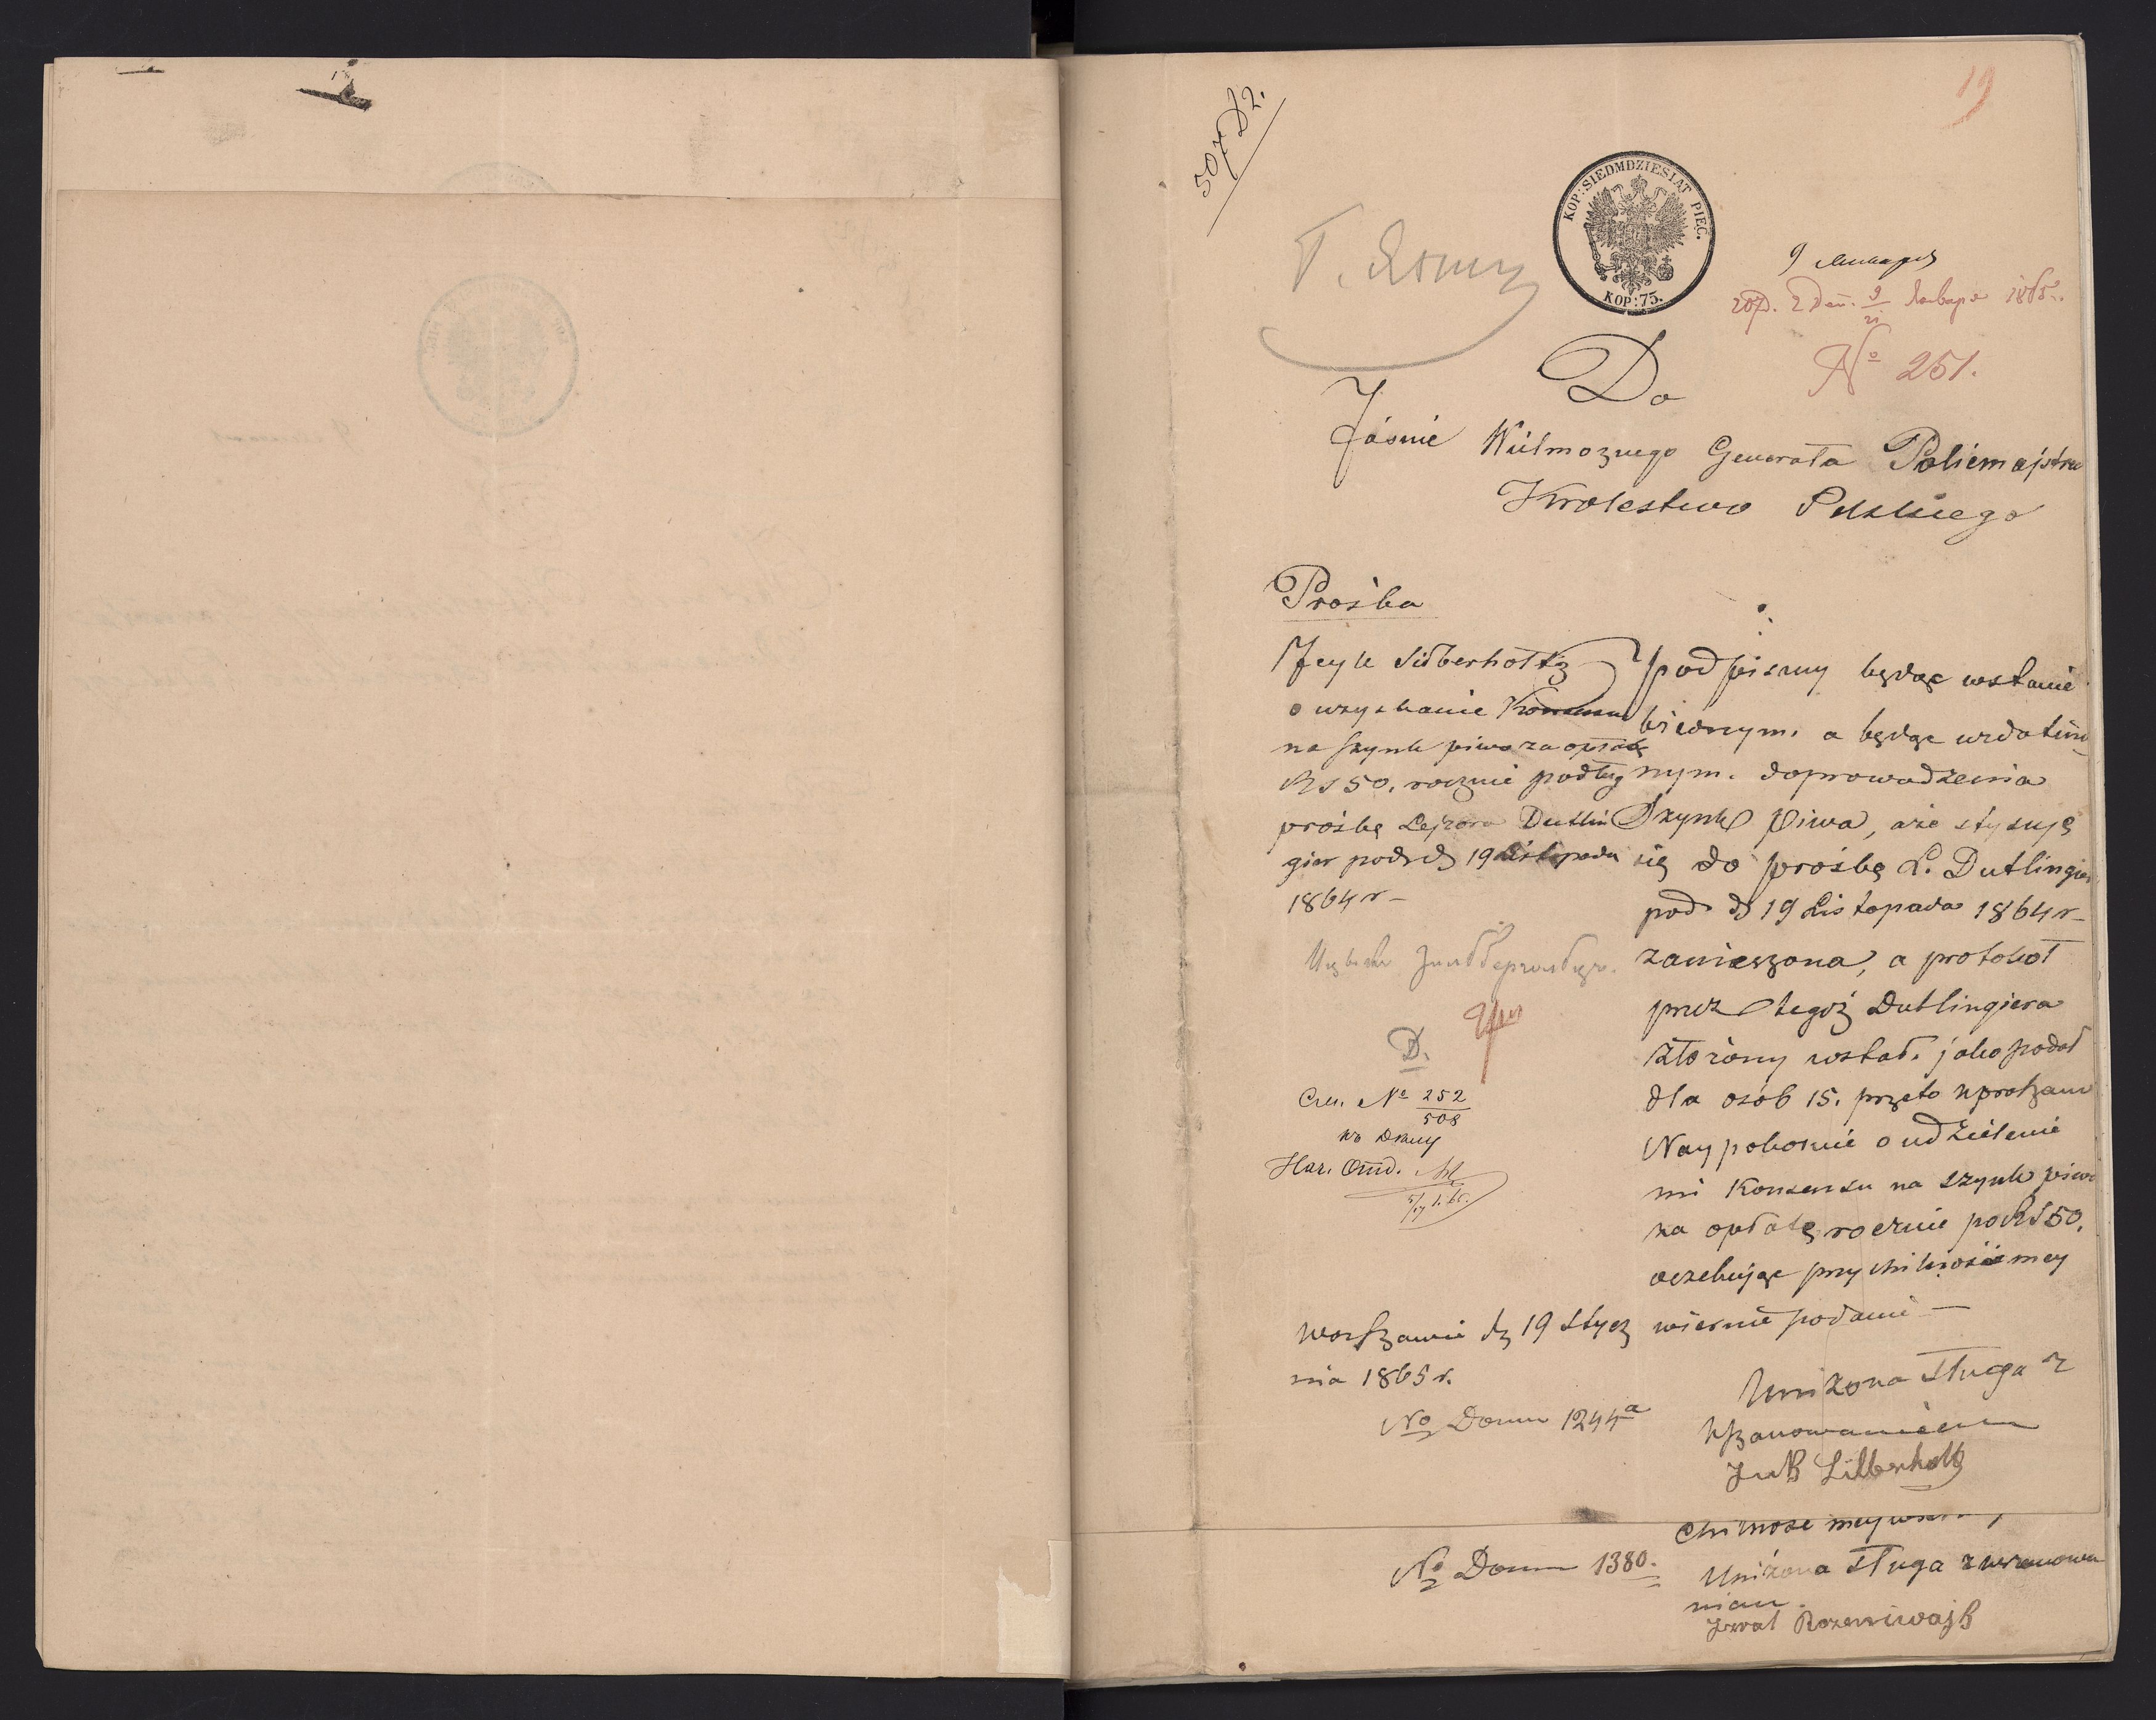 19
507 D2.
KOP: SIEDMDZIESIAT PIĘĆ.
KOP: 75.
9 Января
2 Ден. 9/21 Января 1865.
№ 251.
Do
Jaśnie Wielmożnego Generała Policmajstra
Krolestwa Polskiego
Prośba
Icyk Silberholtz
o uzyskanie Konsensu
na szynk piwa za opłatę
RS 50. rocznie podług
prośbę Lejzora Dutlin
gier pod d 19 Listopada
1864 r -
Podpisany będąc wstanie
biednym. a będąc uzdatnio
nym. doprowadzenia
Szynk Piwa, aże stysuję
się do prośbę L. Dutlingier
pod d 19 Listopada 1864 r -
zanieszona, a protokoł
przez tegoż Dutlingiera
złożony został. jako podał
dla osób 15. przeto upraszam
Naypokornie o udzielenie
mi Konsensu na szynk piwa
na opłatę rocznie po RS 50.
oczekując przychilności mey
wiernie podanie —
D.
См. № 252/508
Warszawie d 19 Stycz
nia 1865 r.
No Domu 1244a
Unizona Sługa z
Uszanowaniem
Silberholtz
chilność mey
No Domu 1380.
Uniżona Sługa z uszanowa
niem.
Rozencwajg